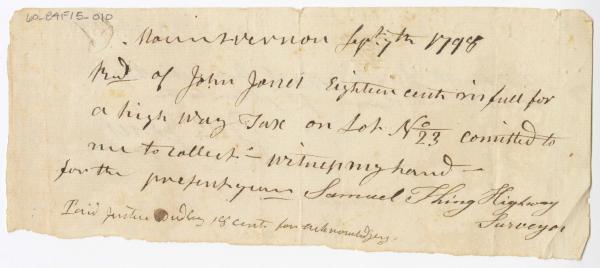 60-E4F15-010
Mount vernon Septr 7th 1798
Recd of John Jones Eighteen cents in full for
a high way Tax on Lot No 23 comitted to
me to collect – witness my hand –
for the present year Samuel Thing Highway
Surveyor
Paid Justice Dudley 18 cents for acknowledging.